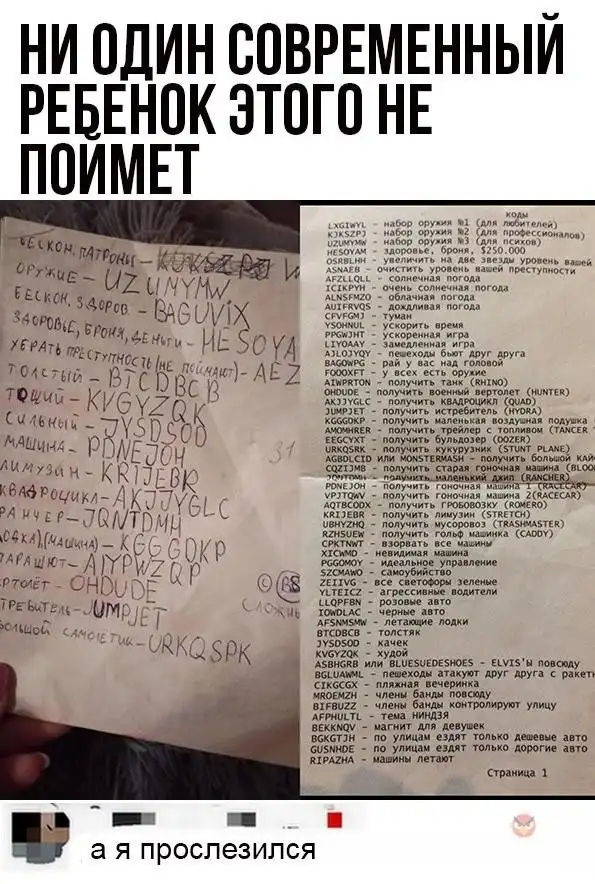 НИ ОДИН СОВРЕМЕННЫЙ
РЕБЕНОК ЭТОГО НЕ
ПОЙМЕТ
БЕСКОН. ПАТРОНЫ -
ОРУЖИЕ - UZUMYMW
БЕСКОН, ЗДОРОВ. - BAGUVIX
ЗДОРОВЬЕ, БРОНЯ, ДЕНЬГИ - HESOYA
УБРАТЬ ПРЕСТУПНОСТЬ (НЕ ПОЙМАЮТ) - AEZ
ТОЛСТЫЙ - BTCDBCB
ТОЩИЙ - KVGYZQK
СИЛЬНЫЙ - JYSDSOD
МАШИНА - PDNEJOH
ЛИМУЗИН - KRIJEBR
КВАДРОЦИКЛ - AKJJYGLC
РАНЧЕР - JQNTDMH
ОДКА) (МАШИНА) - KGGGDKP
ПАРАШЮТ - AIYPWZQP
РТОЛЁТ - OHDUDE
ТРЕБИТЕЛЬ - JUMPJET
БОЛЬШОЙ САМОЛЁТИК - URKQSPK
31
СЛОЖНЫ
коды
LXGIWYL - набор оружия №1 (для любителей)
KJKSZPJ - набор оружия №2 (для профессионалов)
UZUMYMW - набор оружия №3 (для психов)
HESOYAM - здоровье, броня, $250.000
OSRBLHH - увеличить на две звезды уровень вашей
ASNAEB - очистить уровень вашей преступности
AFZLLQLL - солнечная погода
ICIKPYH - очень солнечная погода
ALNSFMZO - облачная погода
AUIFRVQS - дождливая погода
CFVFGMJ - туман
YSOHNUL - ускорить время
PPGWJHT - ускоренная игра
LIYOAAY - замедленная игра
AJLOJYQY - пешеходы бьют друг друга
BAGOWPG - рай у вас над головой
FOOOXFT - у всех есть оружие
AIWPRTON - получить танк (RHINO)
OHDUDE - получить военный вертолет (HUNTER)
AKJJYGLC - получить КВАДРОЦИКЛ (QUAD)
JUMPJET - получить истребитель (HYDRA)
KGGGDKP - получить маленькая воздушная подушка
AMOMHRER - получить трейлер с топливом (TANCER
EEGCYXT - получить бульдозер (DOZER)
URKQSRK - получить кукурузник (STUNT PLANE)
AGBDLCID ИЛИ MONSTERMASH - получить большой кай
CQZIJMB - получить старая гоночная машина (BLOO
JQNTDMH - получить маленький джип (RANCHER)
PDNEJOH - получить гоночная машина 1 (RACECAR)
VPJTQWV - получить гоночная машина 2(RACECAR)
AQTBCODX - получить ГРОБОВОЗКУ (ROMERO)
KRIJEBR - получить лимузин (STRETCH)
UBHYZHQ - получить мусоровоз (TRASHMASTER)
RZHSUEW - получить гольф машинка (CADDY)
CPKTNWT - взорвать все машины
XICWMD - невидимая машина
PGGOMOY - идеальное управление
SZCMAWO - самоубийство
ZEIIVG - все светофоры зеленые
YLTEICZ - агрессивные водители
LLQPFBN - розовые авто
IOWDLAC - черные авто
AFSNMSMW - летающие лодки
BTCDBCB - толстяк
JYSDSOD - качек
KVGYZQK - худой
ASBHGRB ИЛИ BLUESUEDESHOES - ELVIS'ы повсюду
BGLUAWML - пешеходы атакуют друг друга с ракетн
CIKGCGX - пляжная вечеринка
MROEMZH - члены банды повсюду
BIFBUZZ - члены банды контролируют улицу
AFPHULTL - тема НИНДЗЯ
BEKKNQV - магнит для девушек
BGKGTJH - по улицам ездят только дешевые авто
GUSNHDE - по улицам ездят только дорогие авто
RIPAZHA - машины летают
Страница 1
а я прослезился